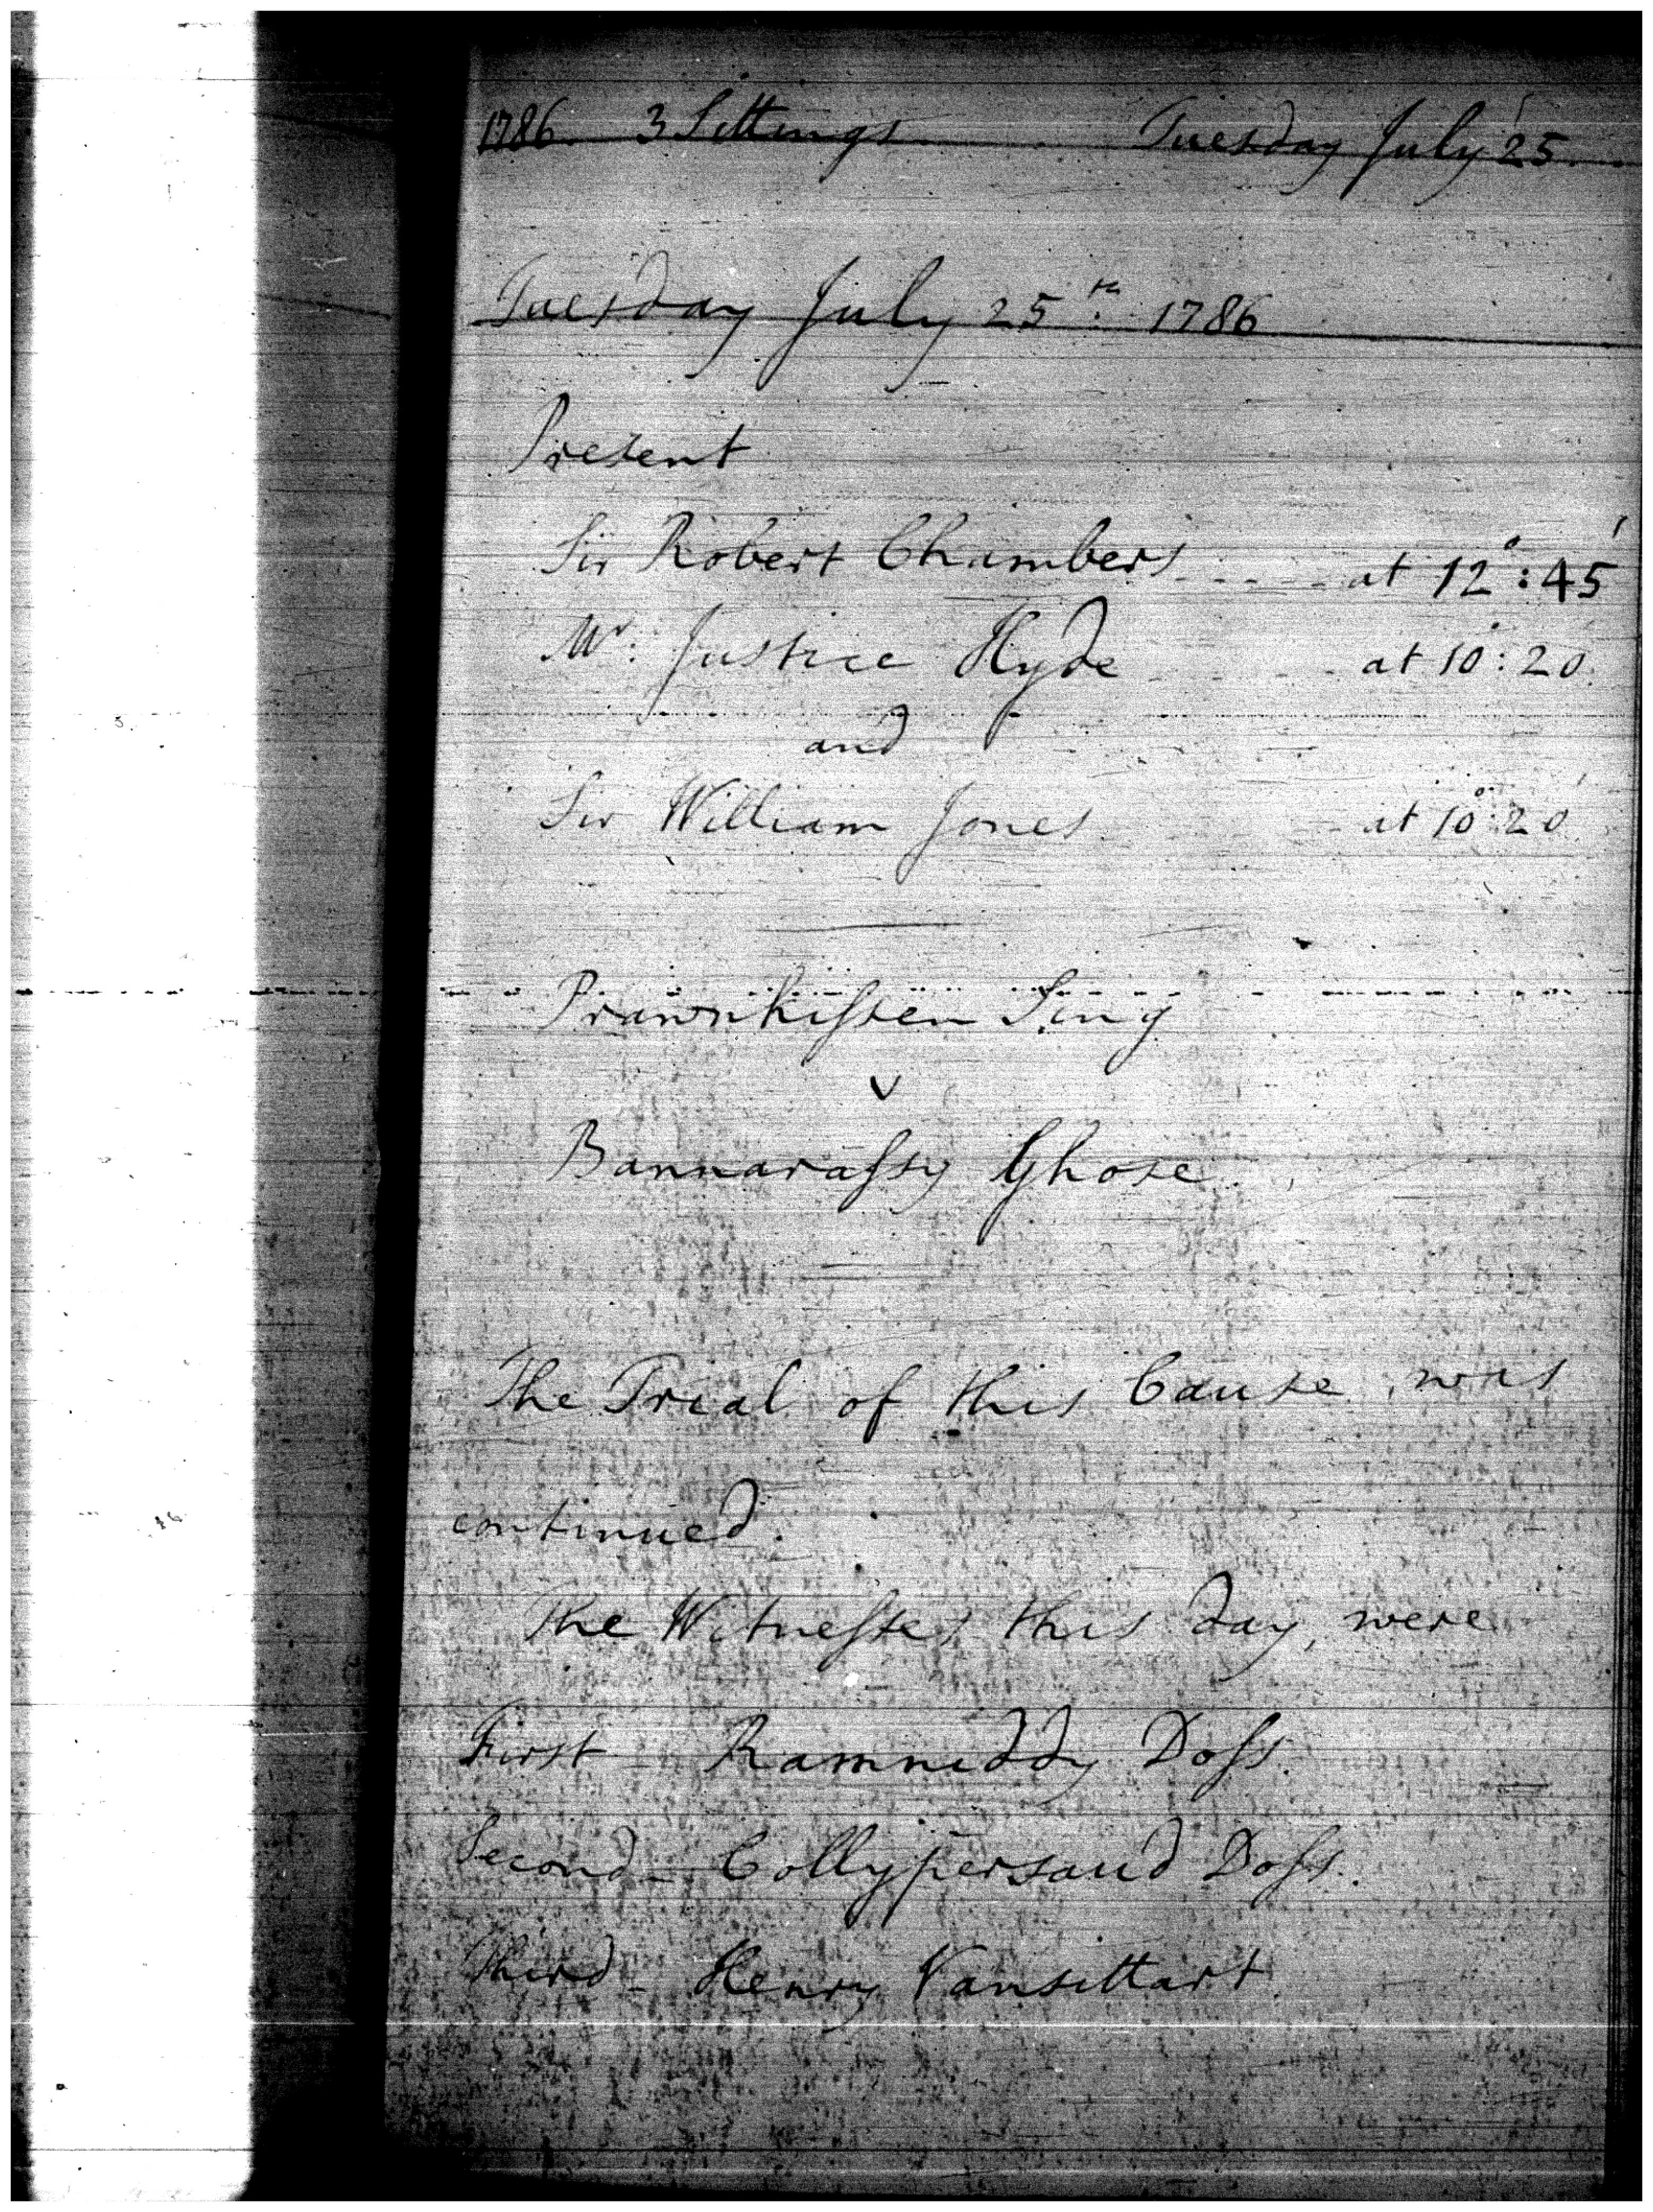 1786. 3 Sittings. Tuesday July 25.
Tuesday July 25th. 1786
Present
Sir Robert Chambers - - - - at 12°: 45'
Mr: Justice Hyde - - at 10°: 20'
and
Sir William Jones - at 10°: 20'
Prawnkiſsen Sing
v
Bannaraſsy Ghose.
The Trial of this Cause was
continued.
The Witneſses this day, were
First - Ramniddy Doſs.
Second - Collypersaud Doſs.
Third - Henry Vansittart.